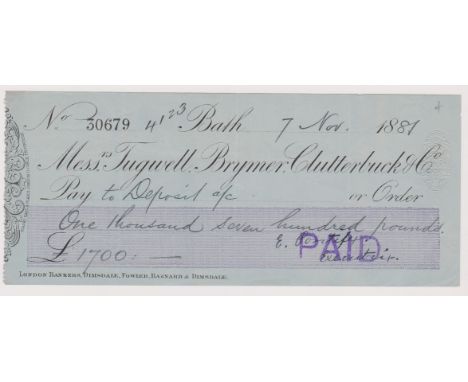 No 30679 4123 Bath 7 Nov. 1881
Messrs Tugwell, Brymer, Clutterbuck & Co
Pay to Deposit a/c or Order
One thousand seven hundred pounds.
£1700:— E.
PAID
executrix.
London Bankers, Dimsdale, Fowler, Barnard & Dimsdale.